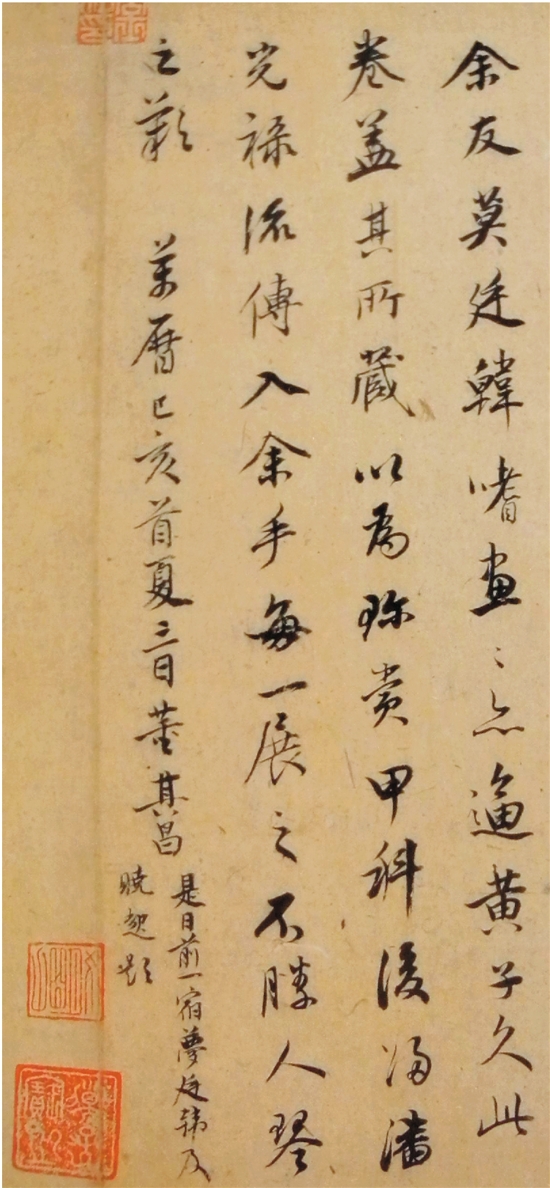 余友莫廷韓嗜畫〻亦逼黃子久此
卷蓋其所藏以為珍賞甲科後歸潘
光祿流傳入余手每一展之不勝人琴
之歎 萬曆己亥首夏三日董其昌
是日前一宿夢廷韓及
曉起題